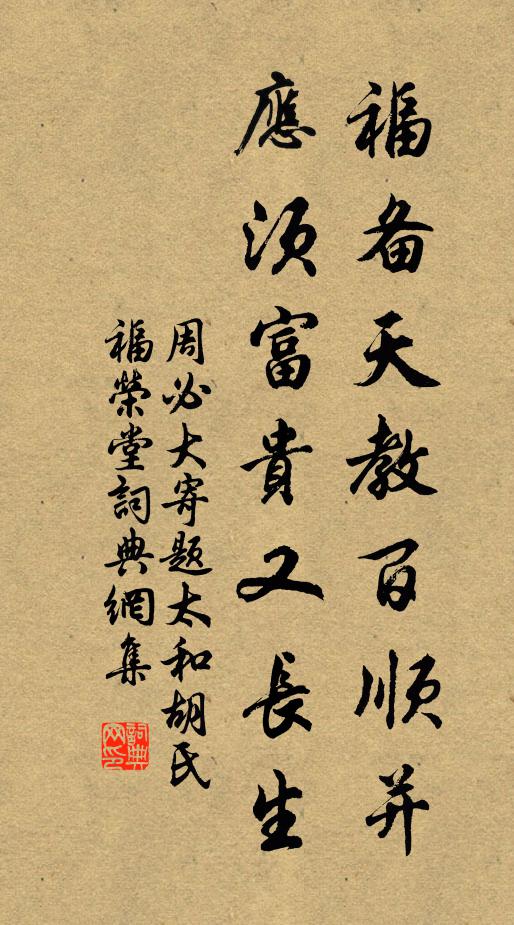 福备天教百順并
應須富貴又長生
周必大寄題太和胡氏
福榮堂詞典網集
詞典
网印